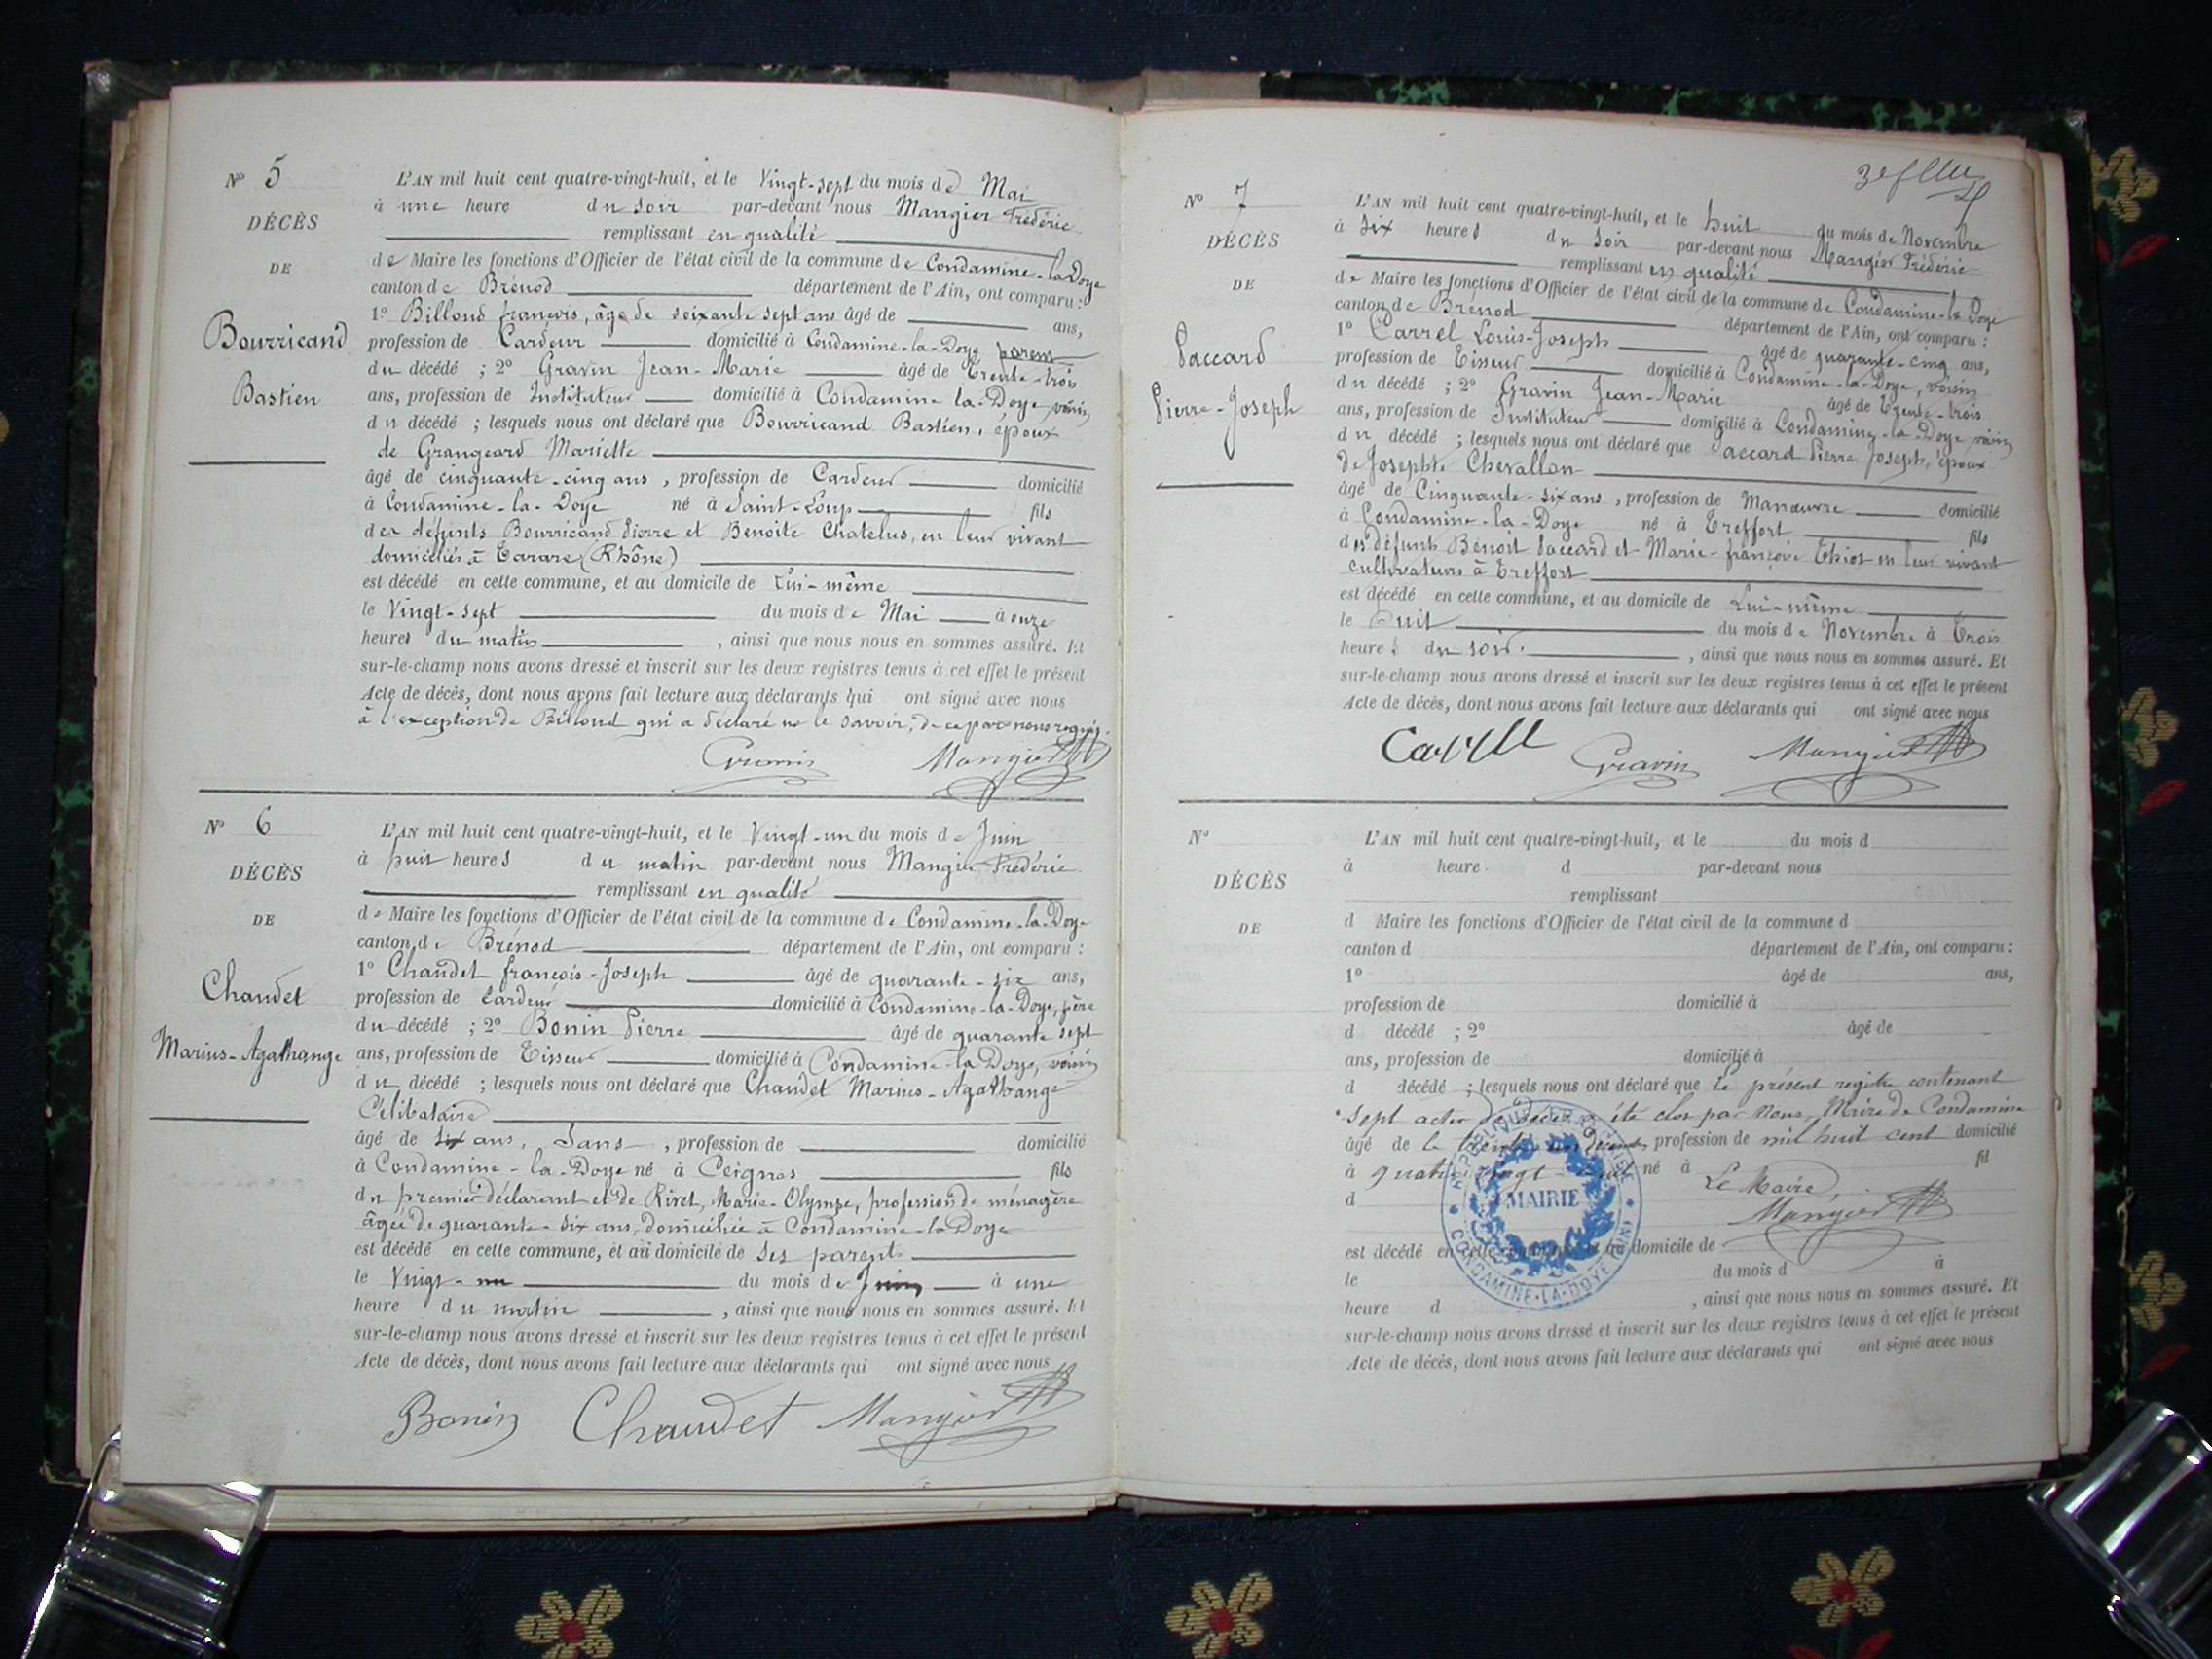 N° 5
DÉCÈS
DE
Bourricand
Bastien
L'AN mil huit cent quatre-vingt-huit, et le Vingt-sept du mois de Mai
à une heure du soir par-devant nous Mangier Frédéric
remplissant en qualité
de Maire les fonctions d'Officier de l'état civil de la commune de Condamine-la-Doye
canton de Brénod département de l'Ain, ont comparu :
1° Billoud françois, âgé de soixante sept ans âgé de ans,
profession de Cardeur domicilié à Condamine-la-Doye parent
du décédé ; 2° Gravin Jean-Marie âgé de Trente-trois
ans, profession de Instituteur domicilié à Condamine-la-Doye, voisin
du décédé ; lesquels nous ont déclaré que Bourricand Bastien, époux
de Grangeard Mariette
âgé de cinquante-cinq ans, profession de Cardeur domicilié
à Condamine-la-Doye né à Saint-Loup fils
des défunts Bourricand Pierre et Benoite Chatelus, en leur vivant
domiciliés à Tarare (Rhône)
est décédé en cette commune, et au domicile de Lui-même
le Vingt-sept du mois de Mai à onze
heures du matin, ainsi que nous nous en sommes assuré. Et
sur-le-champ nous avons dressé et inscrit sur les deux registres tenus à cet effet le présent
Acte de décès, dont nous avons fait lecture aux déclarants qui ont signé avec nous
à l'exception de Billoud qui a déclaré ne le savoir, de ce par nous requis.
Gravin Mangier
N° 6
DÉCÈS
DE
Chaudet
Marius-Agathange
L'AN mil huit cent quatre-vingt-huit, et le Vingt-un du mois de Juin
à huit heures du matin par-devant nous Mangier Frédéric
remplissant en qualité
de Maire les fonctions d'Officier de l'état civil de la commune de Condamine-la-Doye
canton de Brénod département de l'Ain, ont comparu :
1° Chaudet françois-Joseph âgé de quarante-six ans,
profession de Cardeur domicilié à Condamine-la-Doye, père
du décédé ; 2° Bonin Pierre âgé de quarante sept
ans, profession de Tisseur domicilié à Condamine-la-Doye, voisin
du décédé ; lesquels nous ont déclaré que Chaudet Marius-Agathange
Célibataire
âgé de six ans, Sans, profession de domicilié
à Condamine-la-Doye né à Ceignes fils
du premier déclarant et de Rivet, Marie-Olympe, profession de ménagère
âgée de quarante-six ans, domiciliée à Condamine-la-Doye
est décédé en cette commune, et au domicile de ses parents
le Vingt-un du mois de Juin à une
heure du matin, ainsi que nous nous en sommes assuré. Et
sur-le-champ nous avons dressé et inscrit sur les deux registres tenus à cet effet le présent
Acte de décès, dont nous avons fait lecture aux déclarants qui ont signé avec nous
Bonin Chaudet Mangier
N° 7
DÉCÈS
DE
Paccard
Pierre-Joseph
L'AN mil huit cent quatre-vingt-huit, et le huit du mois de Novembre
à six heures du soir par-devant nous Mangier Frédéric
remplissant en qualité
de Maire les fonctions d'Officier de l'état civil de la commune de Condamine-la-Doye
canton de Brénod département de l'Ain, ont comparu :
1° Carrel Louis-Joseph âgé de quarante-cinq ans,
profession de Tisseur domicilié à Condamine-la-Doye, voisin
du décédé ; 2° Gravin Jean-Marie âgé de Trente-trois
ans, profession de Instituteur domicilié à Condamine-la-Doye, voisin
du décédé ; lesquels nous ont déclaré que Paccard Pierre Joseph, époux
de Josephte Chevallon
âgé de Cinquante-six ans, profession de Manœuvre domicilié
à Condamine-la-Doye né à Treffort fils
des défunts Benoit Paccard et Marie-françoise Thiot en leur vivant
cultivateurs à Treffort
est décédé en cette commune, et au domicile de Lui-même
le huit du mois de Novembre à Trois
heures du soir., ainsi que nous nous en sommes assuré. Et
sur-le-champ nous avons dressé et inscrit sur les deux registres tenus à cet effet le présent
Acte de décès, dont nous avons fait lecture aux déclarants qui ont signé avec nous
Carrel Gravin Mangier
N°
DÉCÈS
DE
L'AN mil huit cent quatre-vingt-huit, et le du mois d
à heure d par-devant nous
remplissant
d Maire les fonctions d'Officier de l'état civil de la commune d
canton d département de l'Ain, ont comparu :
1° âgé de ans,
profession de domicilié à
d décédé ; 2° âgé de
ans, profession de domicilié à
d décédé ; lesquels nous ont déclaré que le présent registre contenant
sept actes de décès a été clos par Nous, Maire de Condamine
âgé de le trente un décembre profession de mil huit cent domicilié
à quatre vingt-huit né à fil
d Le Maire,
Mangier
MAIRIE
CONDAMINE-LA-DOYE (AIN)
est décédé en cette commune, et au domicile de
le du mois d à
heure d, ainsi que nous nous en sommes assuré. Et
sur-le-champ nous avons dressé et inscrit sur les deux registres tenus à cet effet le présent
Acte de décès, dont nous avons fait lecture aux déclarants qui ont signé avec nous